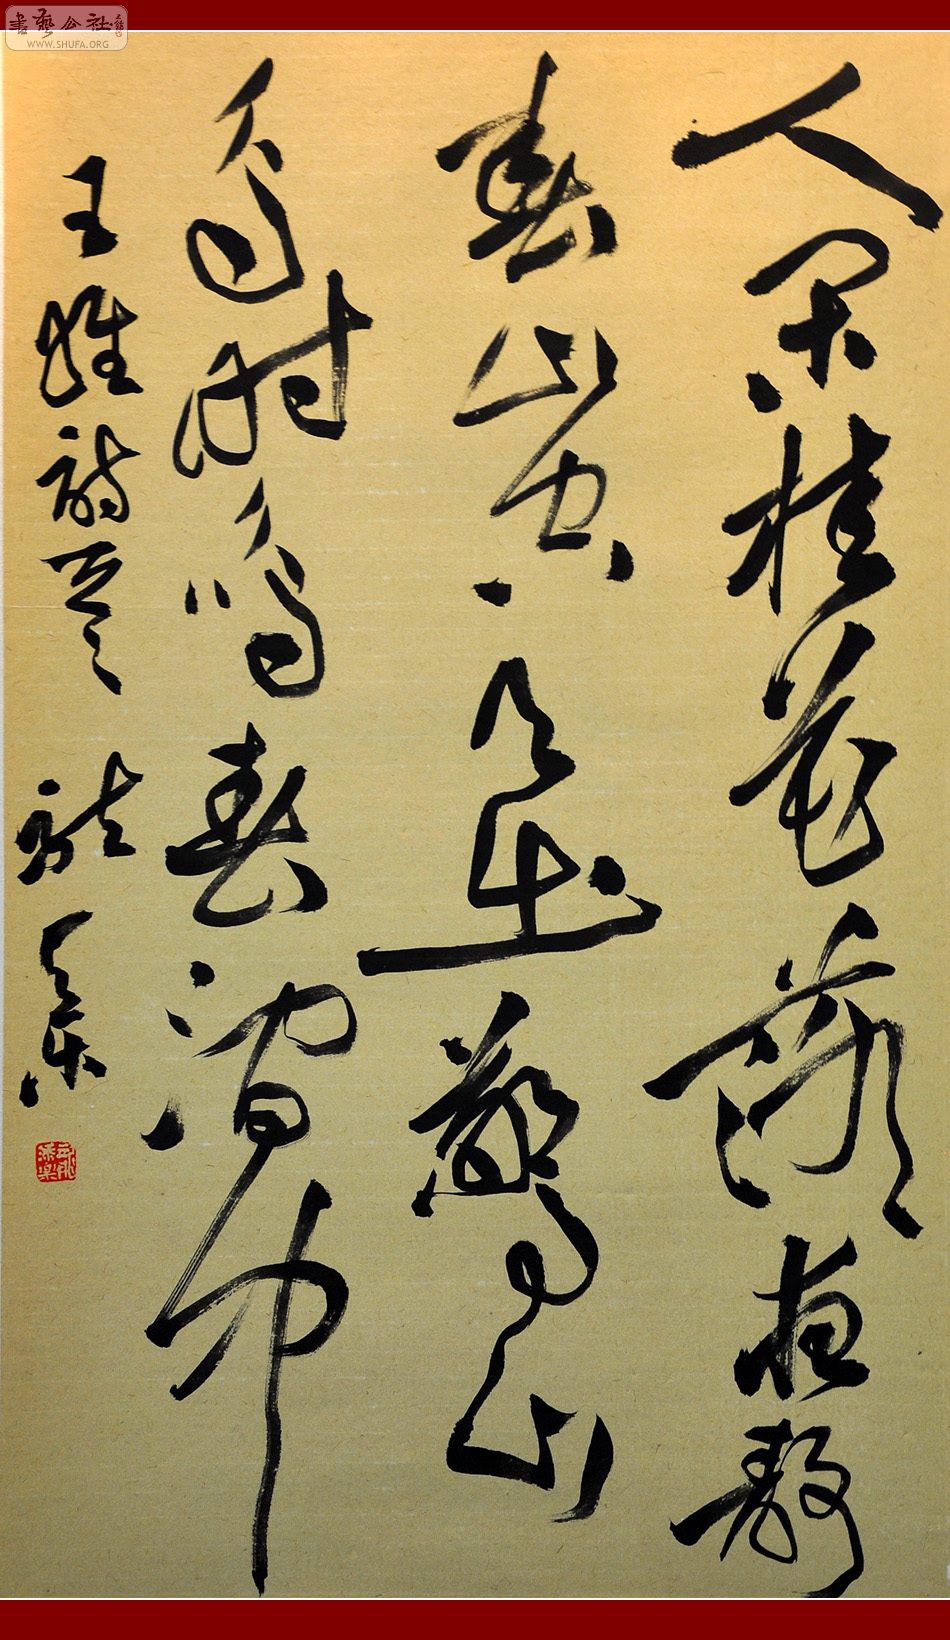 書藝公社
WWW.SHUFA.ORG
人閑桂花落夜靜
春山空月出驚山
鳥時鳴春澗中
王維詩